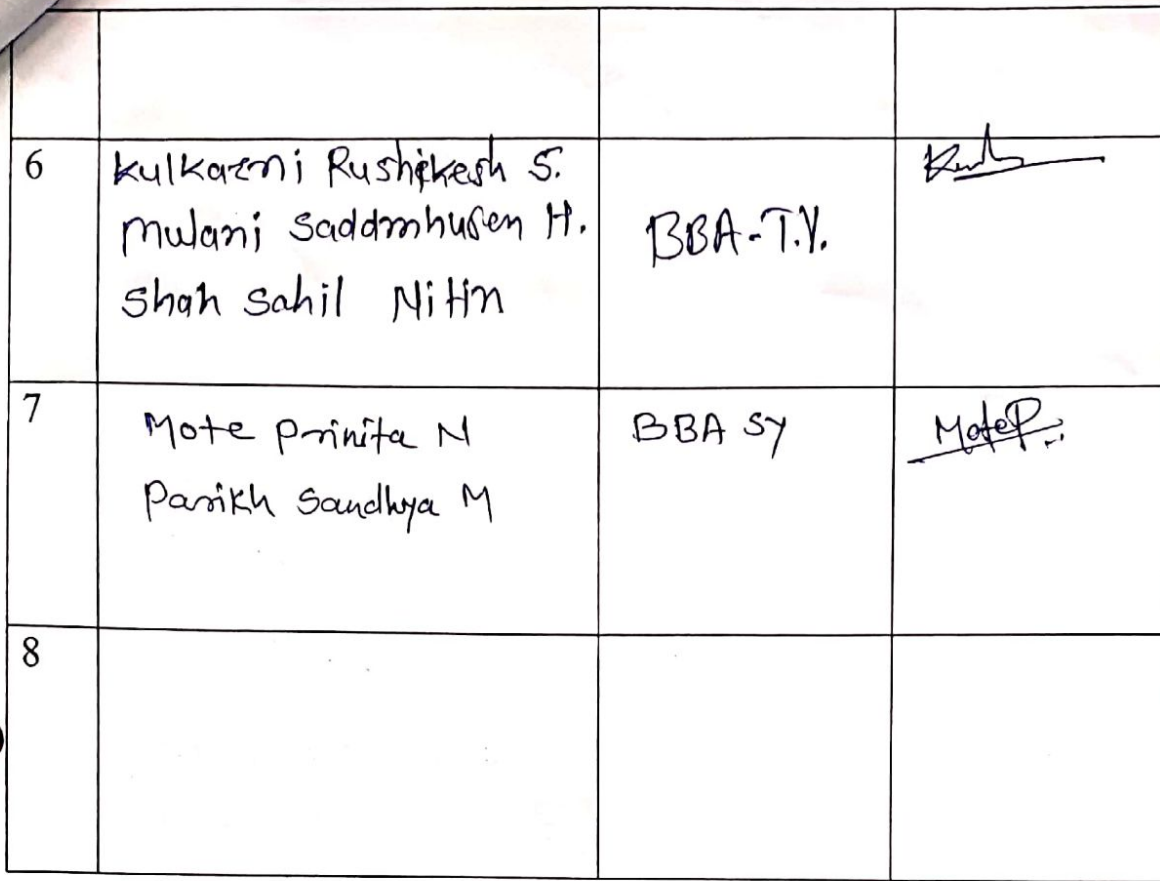 6
Kulkarni Rushikesh S.
Mulani Saddmhusen H.
Shah Sahil Nitin
BBA-T.Y.
7
Mote Prinita N
Parikh Sandhya M
BBA SY
MoteP.
8